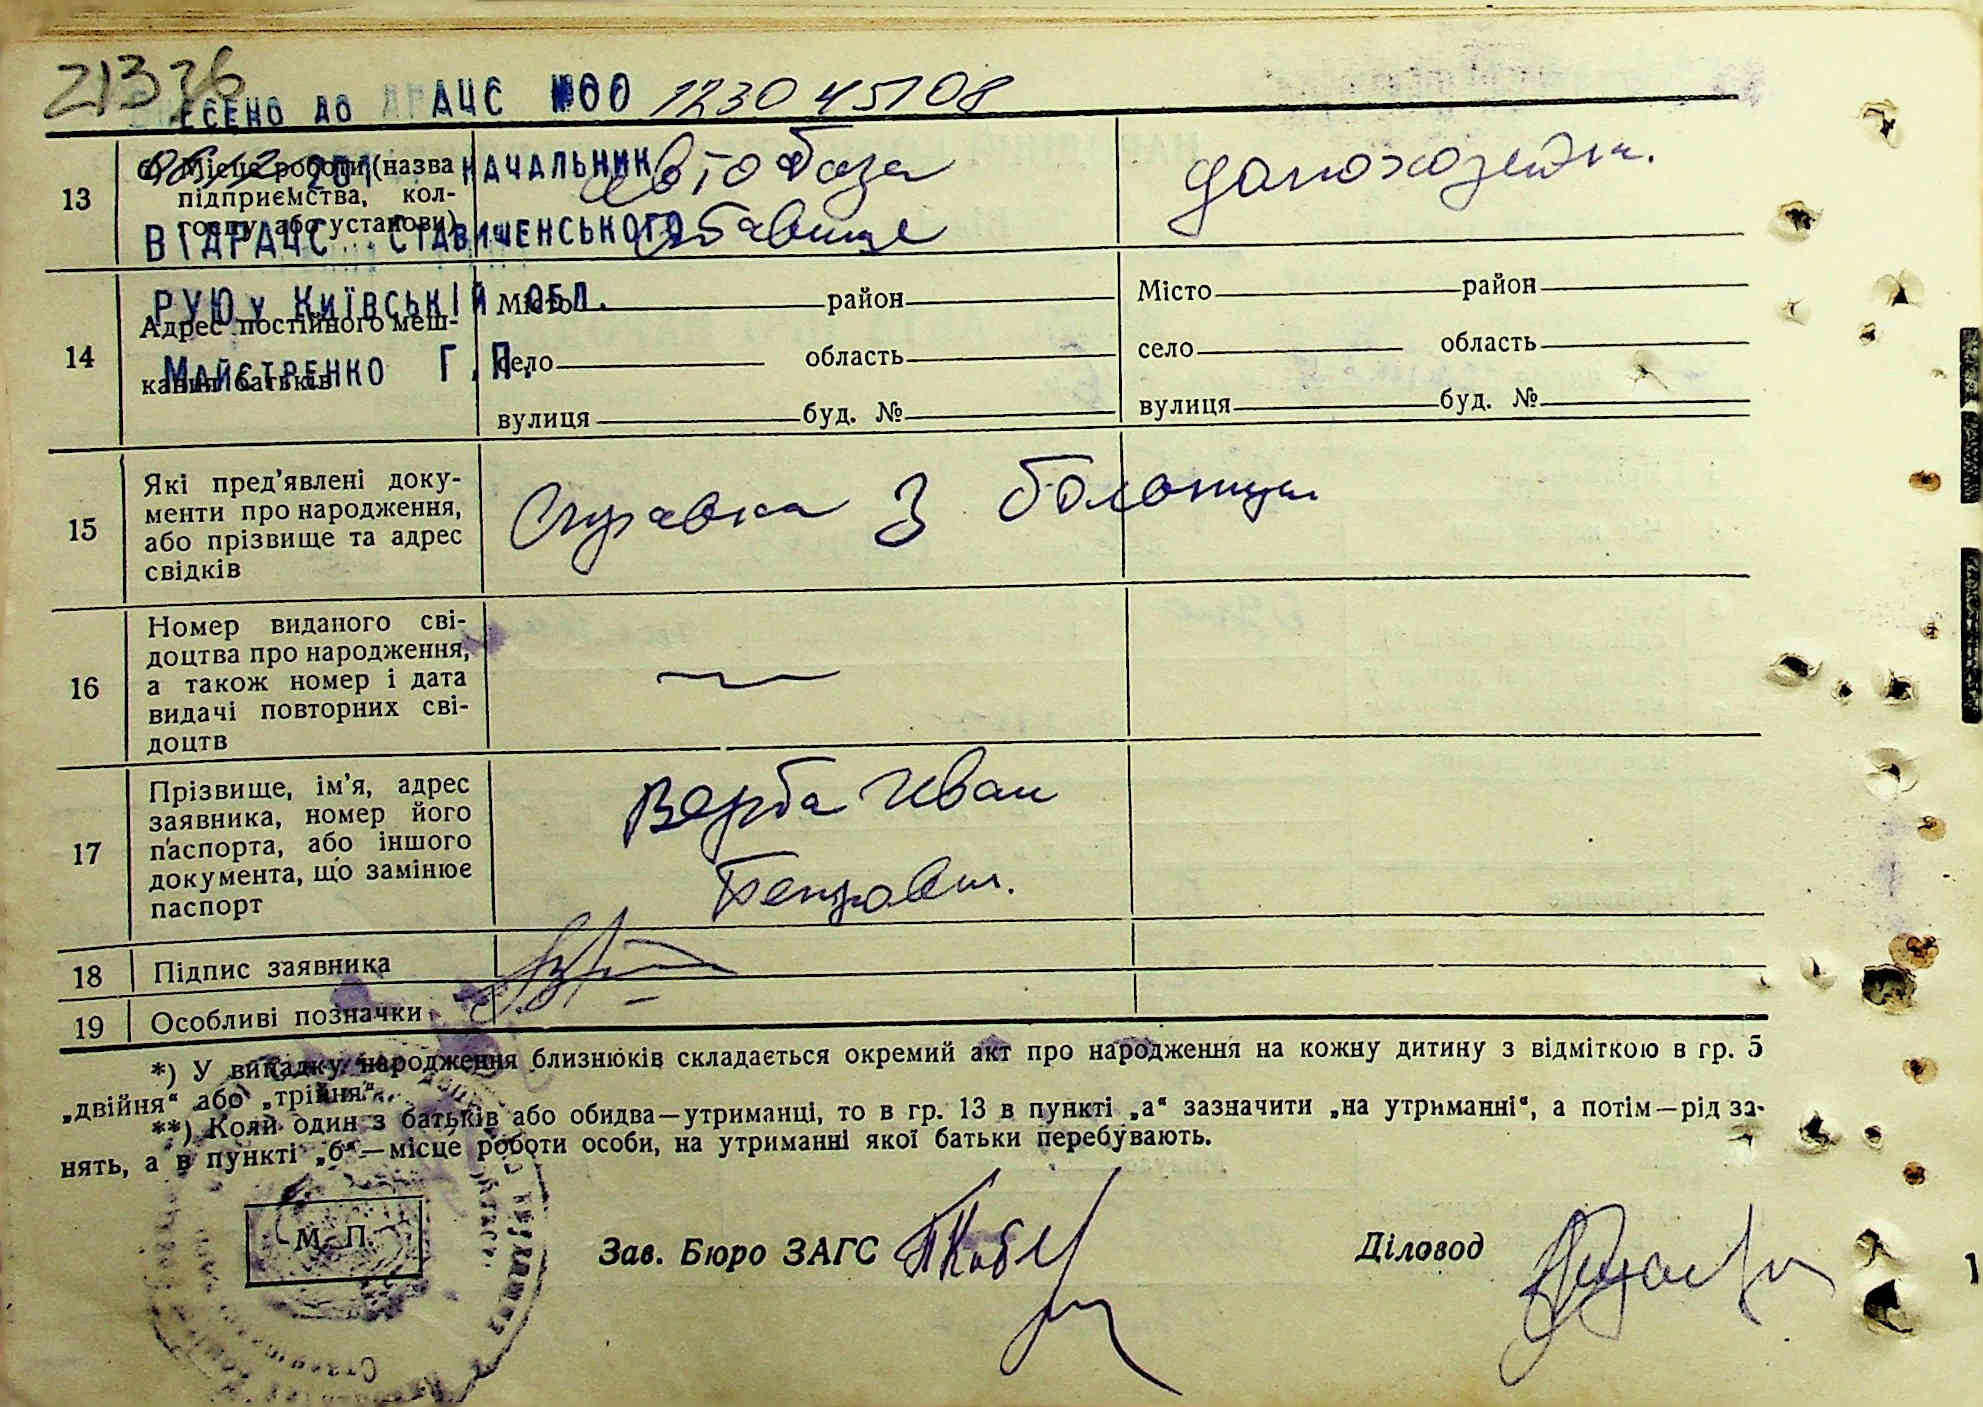 21336
ВНЕСЕНО ДО ДРАЦС №00 1230 45108
начальник
ВІДРАЦС Ставищенського
РУЮ у Київській обл.
Майстренко Г.П.
13
б) Місце роботи (назва
підприємства, кол-
госпу або установи)
автобаза
Ставище
домохозяйк.
14
Адрес постійного меш-
кання батьків
Місто район
село область
вулиця буд. №
Місто район
село область
вулиця буд. №
15
Які пред'явлені доку-
менти про народження,
або прізвище та адрес
свідків
Справка з больниці
16
Номер виданого сві-
доцтва про народження,
а також номер і дата
видачі повторних сві-
доцтв
17
Прізвище, ім'я, адрес
заявника, номер його
паспорта, або іншого
документа, що замінює
паспорт
Верба Іван
Петрович.
18
Підпис заявника
19
Особливі позначки
*) У випадку народження близнюків складається окремий акт про народження на кожну дитину з відміткою в гр. 5
„двійня“ або „трійня“.
**) Коли один з батьків або обидва—утриманці, то в гр. 13 в пункті „а“ зазначити „на утриманні“, а потім—рід за-
нять, а в пункті „б“—місце роботи особи, на утриманні якої батьки перебувають.
М. П.
Зав. Бюро ЗАГС
Діловод